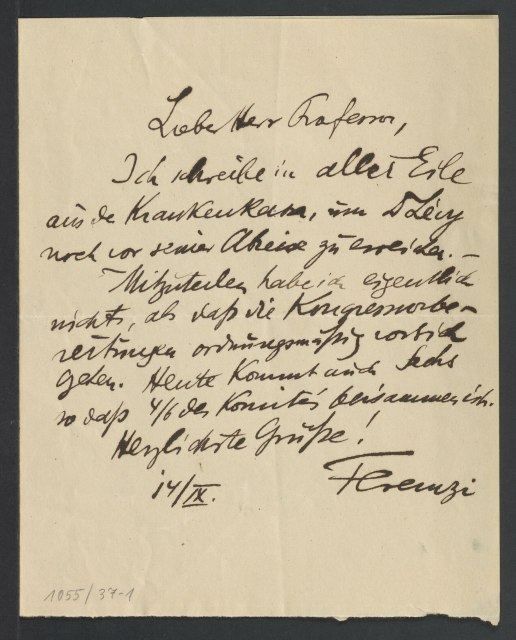 Lieber Herr Professor,
Ich schreibe in aller Eile
aus der Krankenkassa, um Dr Lévy
noch vor seiner Abreise zu erreichen. –
Mitzuteilen habe ich eigentlich
nichts, als daß die Kongressvorbe-
reitungen ordnungsmäßig vor sich
gehen. Heute kommt auch Sachs
so daß 4/6 des Komités beisammen ist.
Herzlichste Grüße!
14/IX. Ferenczi
1055/37-1